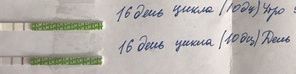 16 день цикла (10дц) Утро
16 день цикла (10дц) День